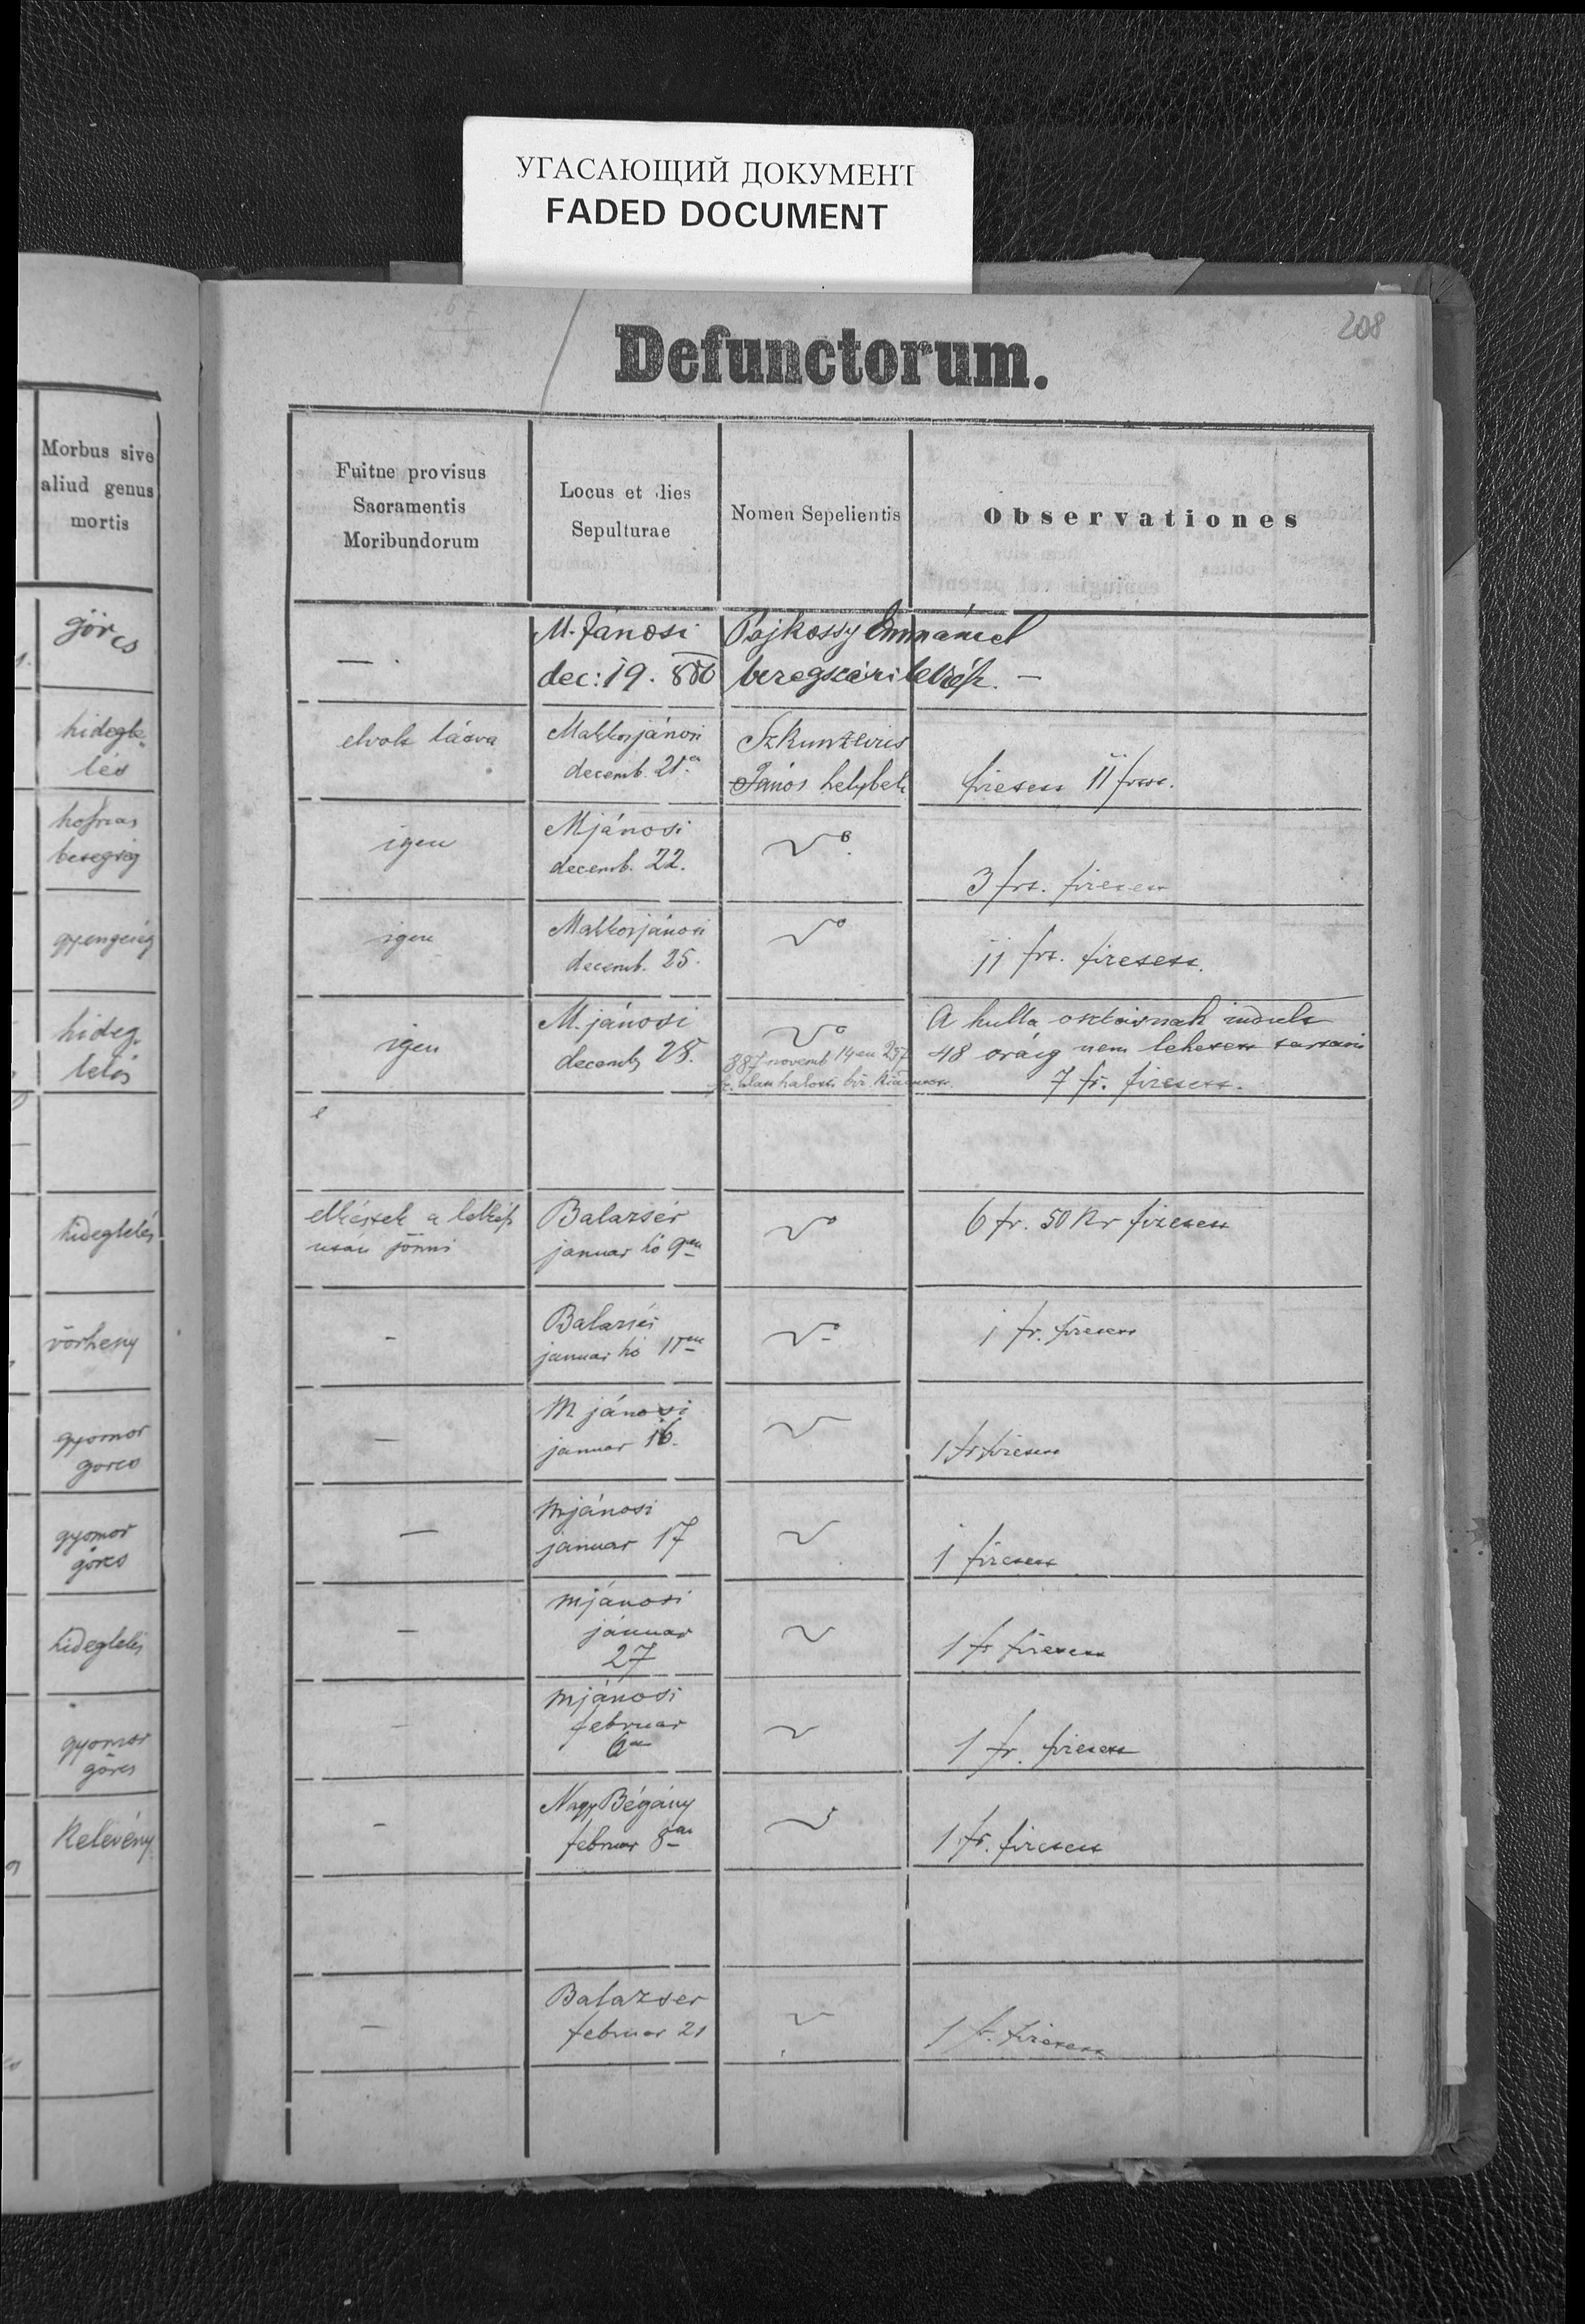 УГАСАЮЩИЙ ДОКУМЕНТ
FADED DOCUMENT
208
Defunctorum.
Morbus sive
aliud genus
mortis
Fuitne provisus
Sacramentis
Moribundorum
Locus et dies
Sepulturae
Nomen Sepelientis
Observationes
görcs
— .
M. Jánosi
dec: 19. 886
Pájkossy Emmánuel
beregszászi lelkész. —
hidegle-
lés
elvolt látva
Makkosjánosi
decemb. 21.
János helybeli
fizetett 11 frtot.
igen
Mjánosi
decemb. 22.
3 frt. fizetett
gyengeség
igen
Makkosjánosi
decemb. 25.
11 frt. fizetett.
hideg-
lelés
igen
M. jánosi
decemb 28.
887 novemb 14en 257
A hulla miatt
48 oráig nem lehetett tartani
7 fr. fizetett.
hideglelés
elkéstek a lelkész
után jönni
Balazsér
januar hó 9en
6 fr. 50 kr fizetett
vörheny
-
Balazsér
januar hó 11en
1 fr. fizetett
gyomor
gorcs
—
M jánosi
januar 16.
1 fr fizetett
gyomor
görcs
—
Mjánosi
januar 17
1 fizetett
hideglelés
—
Mjánosi
jánuar
27
1 fr fizetett
gyomor
görcs
-
Mjánosi
februar
6án
1 fr. fizetett
Kelevény
-
Nagy Bégány
februar 8án
1 fr. fizetett
—
Balazser
februar 21
1 fr. fizetett